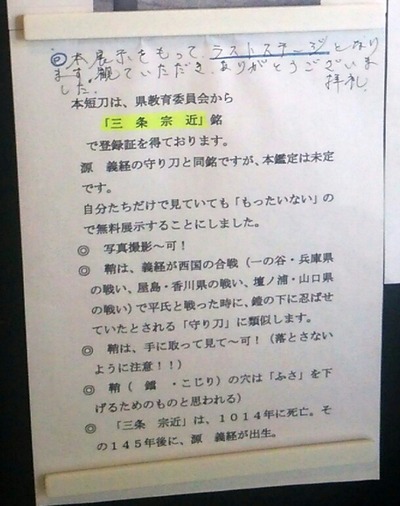 ◎本展示をもって、ラストステージとなり
ます。観ていただき、ありがとうございま
した。 拝礼
本短刀は、県教育委員会から
「三条宗近」銘
で登録証を得ております。
源 義経の守り刀と同銘ですが、本鑑定は未定
です。
自分たちだけで見ていても「もったいない」の
で無料展示することにしました。
◎ 写真撮影~可！
◎ 鞘は、義経が西国の合戦（一の谷・兵庫県
の戦い、屋島・香川県の戦い、壇ノ浦・山口県
の戦い）で平氏と戦った時に、鎧の下に忍ばせ
ていたとされる「守り刀」に類似します。
◎ 鞘は、手に取って見て~可！（落とさない
ように注意！！）
◎ 鞘（ 鐺 ・こじり）の穴は「ふさ」を下
げるためのものと思われる）
◎ 「三条 宗近」は、1014年に死亡。そ
の145年後に、源 義経が出生。